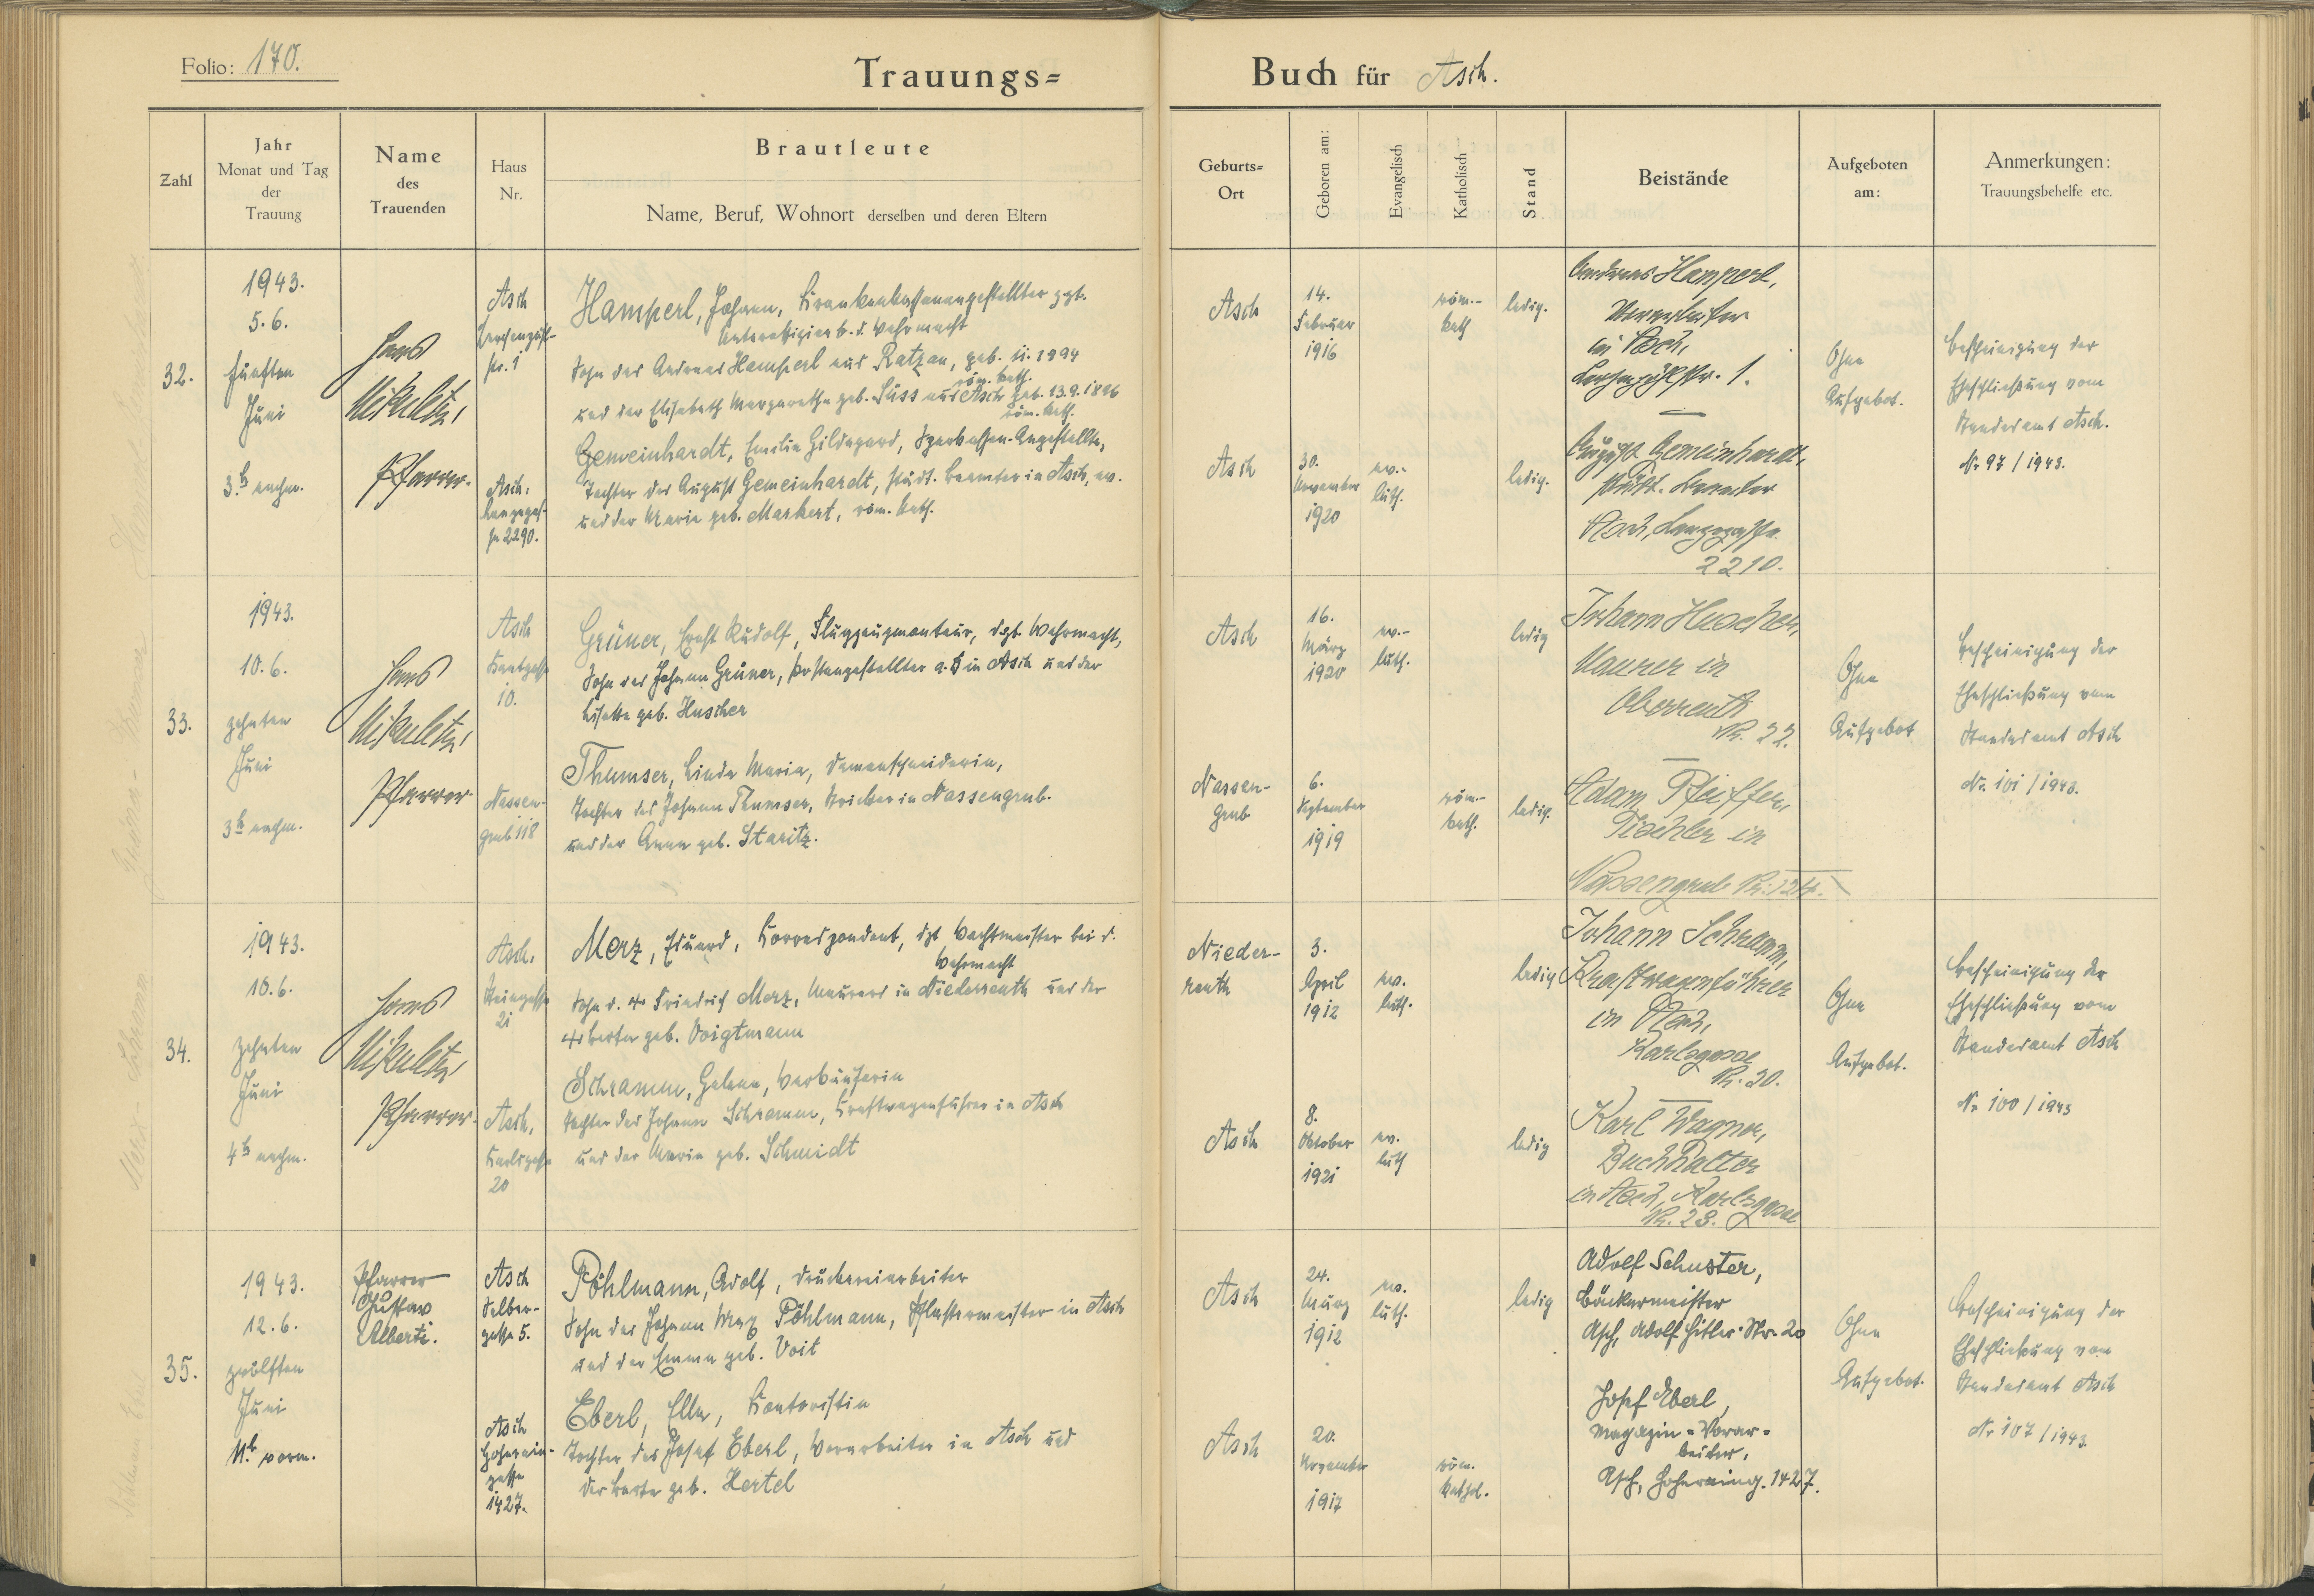 Folio: 170.
Trauungs=
Buch für Asch.
Zahl
Jahr
Monat und Tag
der
Trauung
Name
des
Trauenden
Haus
Nr.
Brautleute
Name, Beruf, Wohnort derselben und deren Eltern
Geburts=
Ort
Geboren am:
Evangelisch
Katholisch
Stand
Beistände
Aufgeboten
am:
Anmerkungen:
Trauungsbehelfe etc.
32.
1943.
5. 6.
fünften
Juni
3 h nachm.
Hans
Mikuletz,
Pfarrer.
Asch
str. 1
Asch,
Langegas-
se 2290.
Hamperl, Johann, Krankenkassenangestellter zzt.
Unteroffizier b. d. Wehrmacht
Sohn des Andreas Hamperl aus Ratzau, geb. 11. 1894
röm. kath.
und der Elisabeth Margaretha geb. Süss aus Asch geb. 13. 9. 1896
röm. kath.
Gemeinhardt, Emilie Hildegard, Sparkassen-Angestellte,
Tochter des August Gemeinhardt, städt. Beamter in Asch, ev.
und der Maria geb. Markert, röm. kath.
Asch
14.
Februar
1916
röm.-
kath
ledig.
Asch
30.
November
1920
ev.-
luth.
ledig.
Andreas Hamperl,
in Asch,
1.
August Gemeinhardt,
städt. Beamter
Asch, Langegasse
2210.
Ohne
Aufgebot.
Bescheinigung der
Eheschließung vom
Standesamt Asch.
Nr 97 / 1943.
33.
1943.
10. 6.
zehnten
Juni
3 h nachm.
Hans
Mikuletz,
Pfarrer
Asch
Kantgasse
10.
Nassen-
grub 118
Grüner, Ernst Rudolf, Flugzeugmonteur, dzt. Wehrmacht,
Sohn des Johann Grüner, Postangestellter a. D in Asch und der
Lisette geb. Huscher
Thumser, Linda Maria, Damenschneiderin,
Tochter des Johann Thumser, Stricker in Nassengrub.
und der Anna geb. Staritz.
Asch
16.
März
1920
ev.-
luth.
ledig
Nassen-
grub
6.
September
1919
röm.-
kath.
ledig.
Johann Huscher,
Maurer in
Oberreuth
Nr. 22.
Adam Pfeiffer,
Tischler in
Nassengrub Nr. 124.
Ohne
Aufgebot
Bescheinigung der
Eheschließung vom
Standesamt Asch
Nr. 101 / 1943.
34.
1943.
10. 6.
zehnten
Juni
4 h nachm.
Hans
Mikuletz,
Pfarrer.
Asch,
Steingasse
21
Asch,
Karlsgasse
20
Merz, Eduard, Korrespondent, dzt Wachtmeister bei d.
Wehrmacht
Sohn d. + Friedrich Merz, Maurers in Niederreuth und der
+ Berta geb. Voigtmann
Schramm, Helene,
Tochter des Johann Schramm, Kraftwagenführer in Asch
und der Maria geb. Schmidt
Nieder-
reuth
3.
April
1912
ev.
luth.
ledig
Asch
8.
Oktober
1921
ev.
luth
ledig
Johann Schramm,
Kraftwagenführer
in Asch,
Karlsgasse
Nr. 20.
Karl Wagner,
Buchhalter
in Asch, Karlsgasse
Nr. 23.
Ohne
Aufgebot.
Bescheinigung der
Eheschließung vom
Standesamt Asch
Nr 100 / 1943
35.
1943.
12. 6.
zwölften
Juni
11 h vorm.
Pfarrer
Gustav
Alberti.
Asch
Selber-
gasse 5.
Asch
Hoherain-
gasse
1427.
Pöhlmann, Adolf, Druckereiarbeiter
Sohn des Johann Max Pöhlmann, Pflastermeister in Asch
und der Emma geb. Voit
Eberl, Ella, Kontoristin
Tochter des Josef Eberl, Vorarbeiter in Asch und
der Berta geb. Hertel
Asch
24.
März
1912
ev.
luth.
ledig
Asch
20.
November
1917
röm.
kathol.
Adolf Schuster,
Bäckermeister
Asch, Adolf Hitler-Str. 20
Josef Eberl,
Magazin-Vorar-
beiter,
Asch, Hoheraing. 1427.
Ohne
Aufgebot.
Bescheinigung der
Eheschließung vom
Standesamt Asch
Nr 107 / 1943.